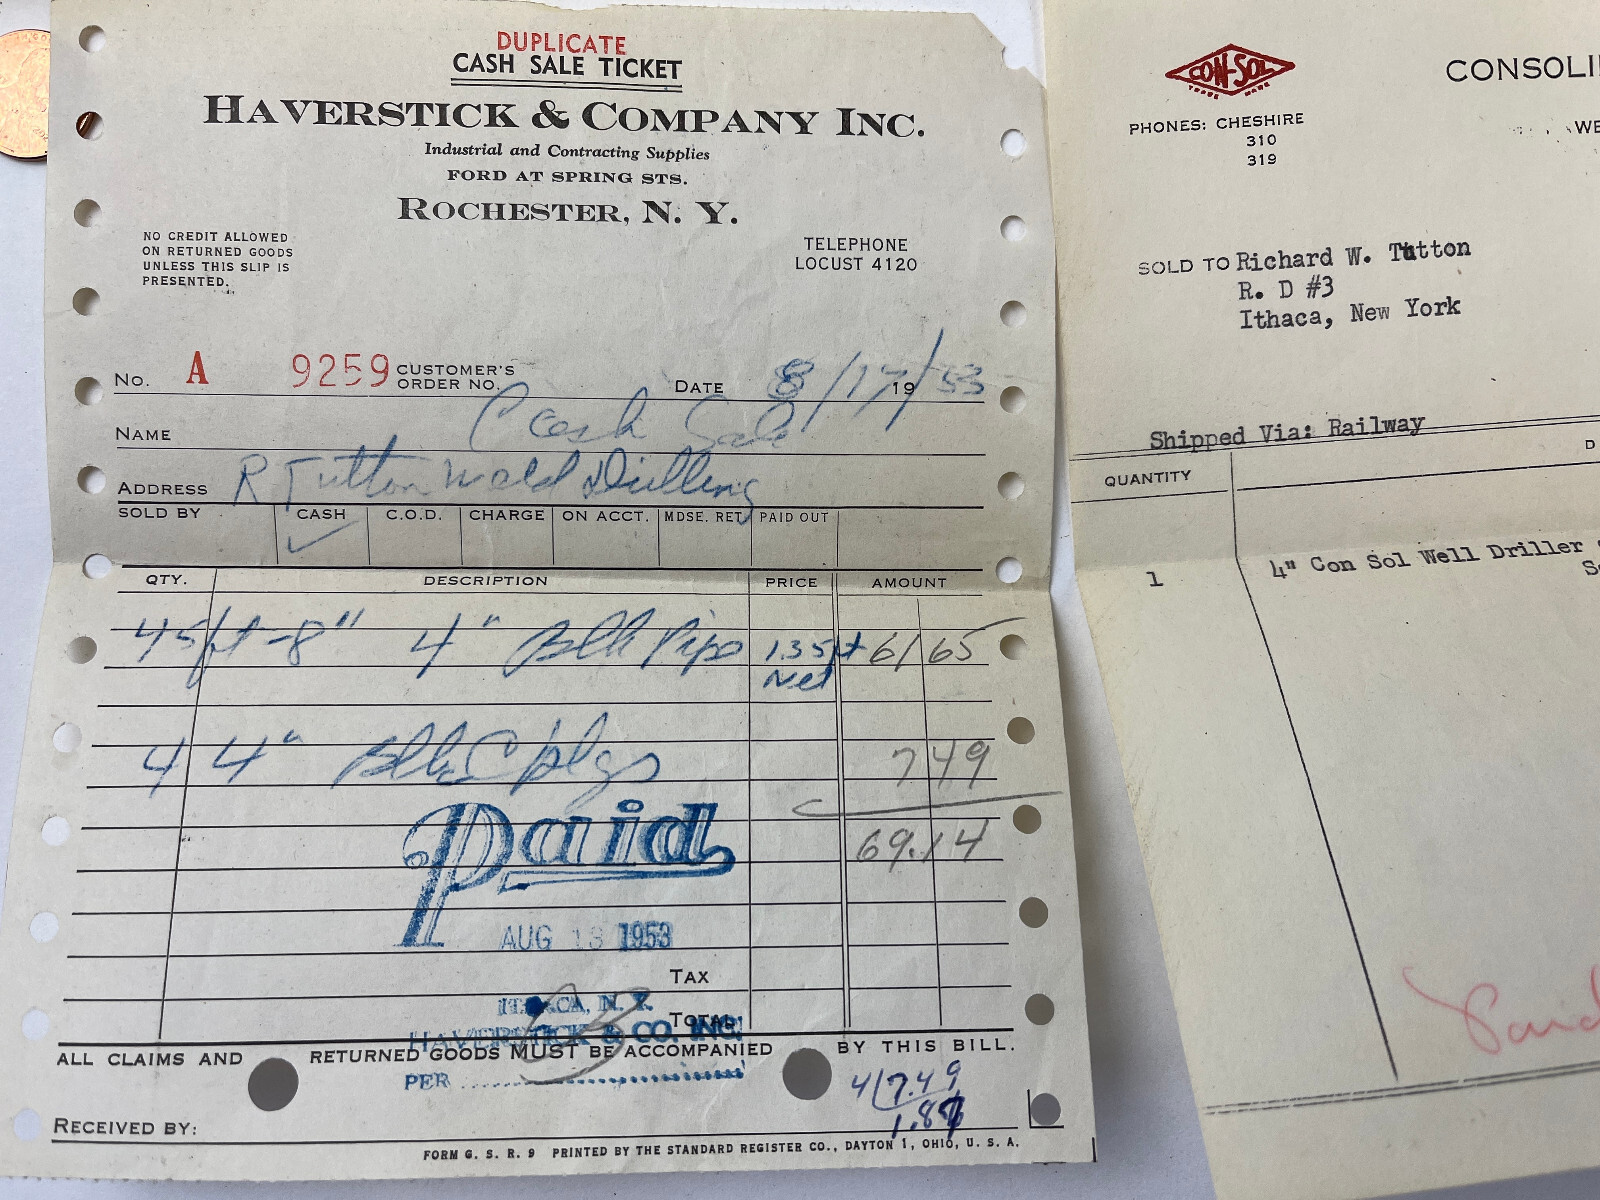 DUPLICATE
CASH SALE TICKET
HAVERSTICK & COMPANY INC.
Industrial and Contracting Supplies
FORD AT SPRING STS.
ROCHESTER, N. Y.
NO CREDIT ALLOWED
ON RETURNED GOODS
UNLESS THIS SLIP IS
PRESENTED.
TELEPHONE
LOCUST 4120
No. A 9259 CUSTOMER'S
ORDER NO.
DATE 8/17/1953
NAME Cash Sale
ADDRESS R Tutton Weld Drilling
SOLD BY CASH C.O.D. CHARGE ON ACCT. MDSE. RET. PAID OUT
✓
QTY. DESCRIPTION PRICE AMOUNT
45ft-8" 4" Blk Pipe 1.35ft 61 65
Net
4 4" Blk Cplgs 7 49
69.14
Paid
AUG 13 1953
TAX
ITHACA, N. Y.
TOTAL
HAVERSTICK & CO. INC.
ALL CLAIMS AND RETURNED GOODS MUST BE ACCOMPANIED BY THIS BILL.
PER
4/7.49
1.87
RECEIVED BY:
FORM G. S. R. 9 PRINTED BY THE STANDARD REGISTER CO., DAYTON 1, OHIO, U. S. A.
CON-SOL
TRADE MARK
CONSOLI
PHONES: CHESHIRE
310
319
WE
SOLD TO Richard W. Tutton
R. D #3
Ithaca, New York
Shipped Via: Railway
QUANTITY D
1 4" Con Sol Well Driller
S
Paid